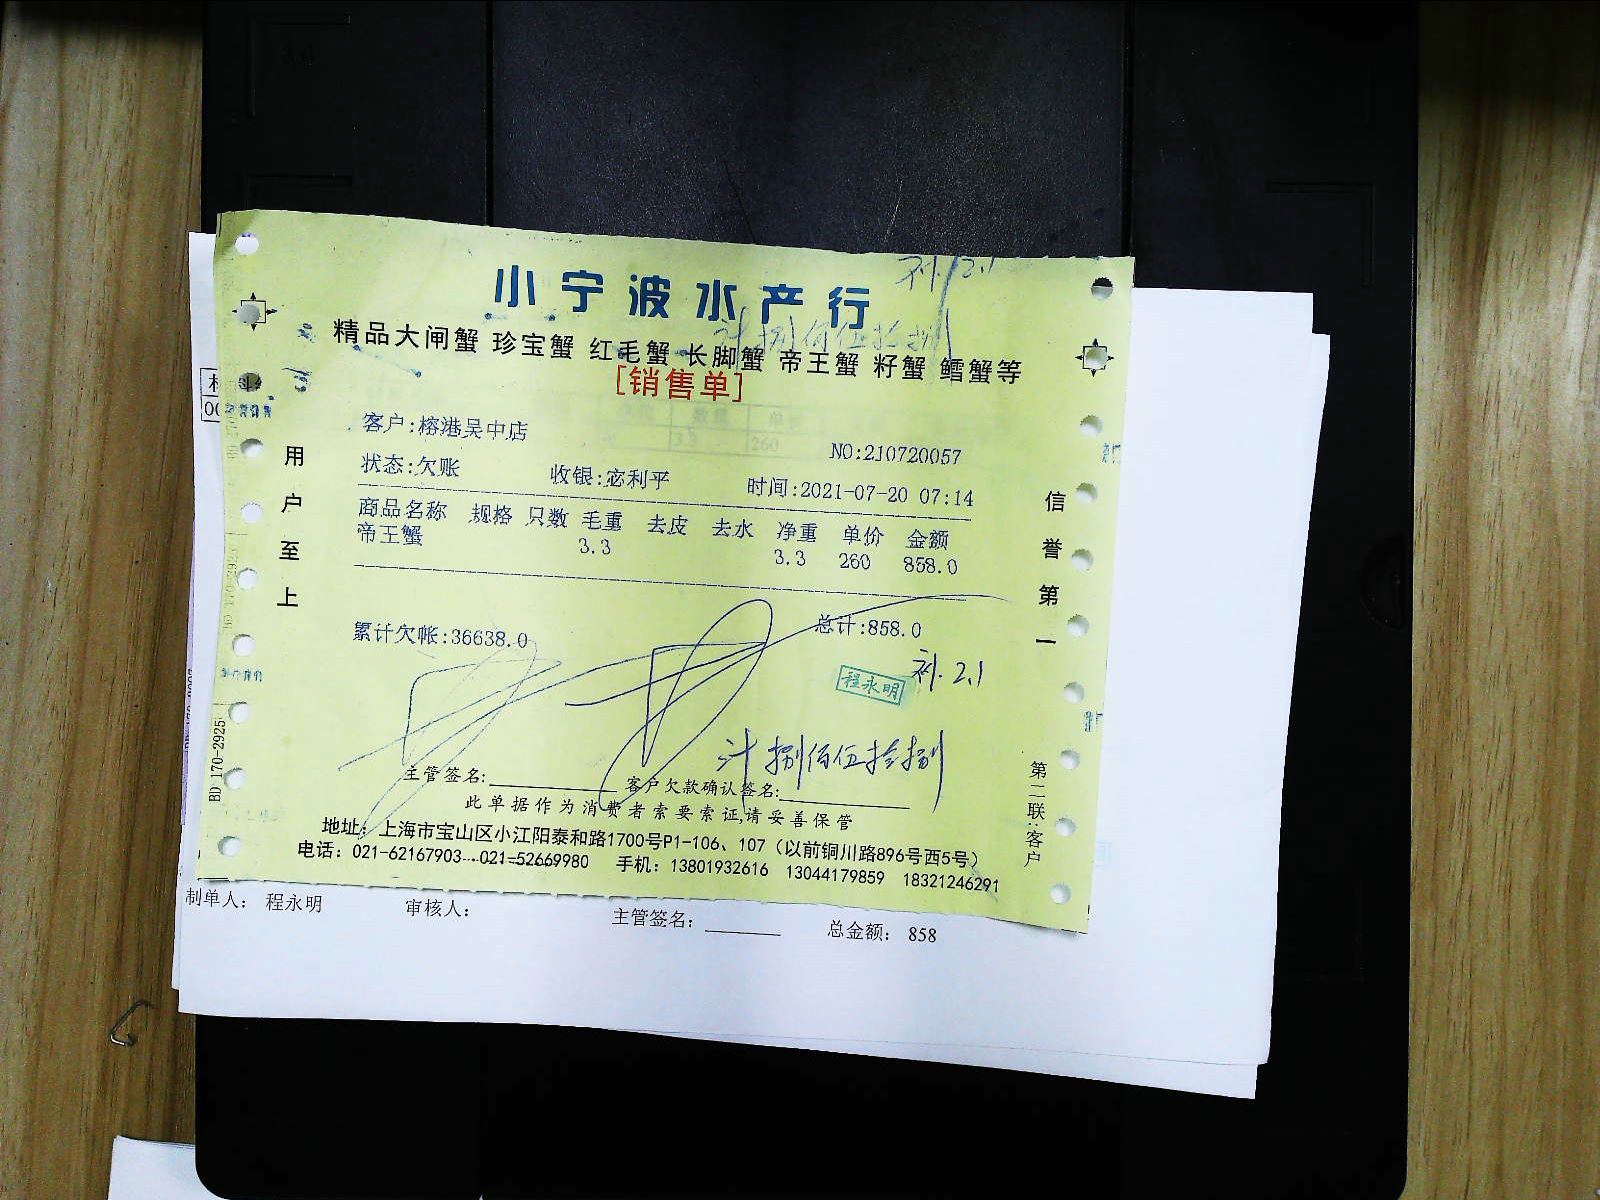 小宁波水产行
精品大闸蟹 珍宝蟹 红毛蟹 长脚蟹 帝王蟹 籽蟹 鳕蟹等
[销售单]
客户:榕港吴中店
NO:210720057
状态:欠账 收银:宓利平 时间:2021-07-20 07:14
商品名称 规格 只数 毛重 去皮 去水 净重 单价 金额
帝王蟹 3.3 3.3 260 858.0
累计欠帐:36638.0 总计:858.0
程永明
2.1
计捌佰伍拾捌
主管签名: 客户欠款确认签名:
此单据作为消费者索要索证,请妥善保管
地址：上海市宝山区小江阳泰和路1700号P1-106、107（以前铜川路896号西5号）
电话：021-62167903 021-52669980 手机：13801932616 13044179859 18321246291
用户至上
信誉第一
第二联:客户
BD 170-2925
制单人： 程永明 审核人： 主管签名： 总金额： 858